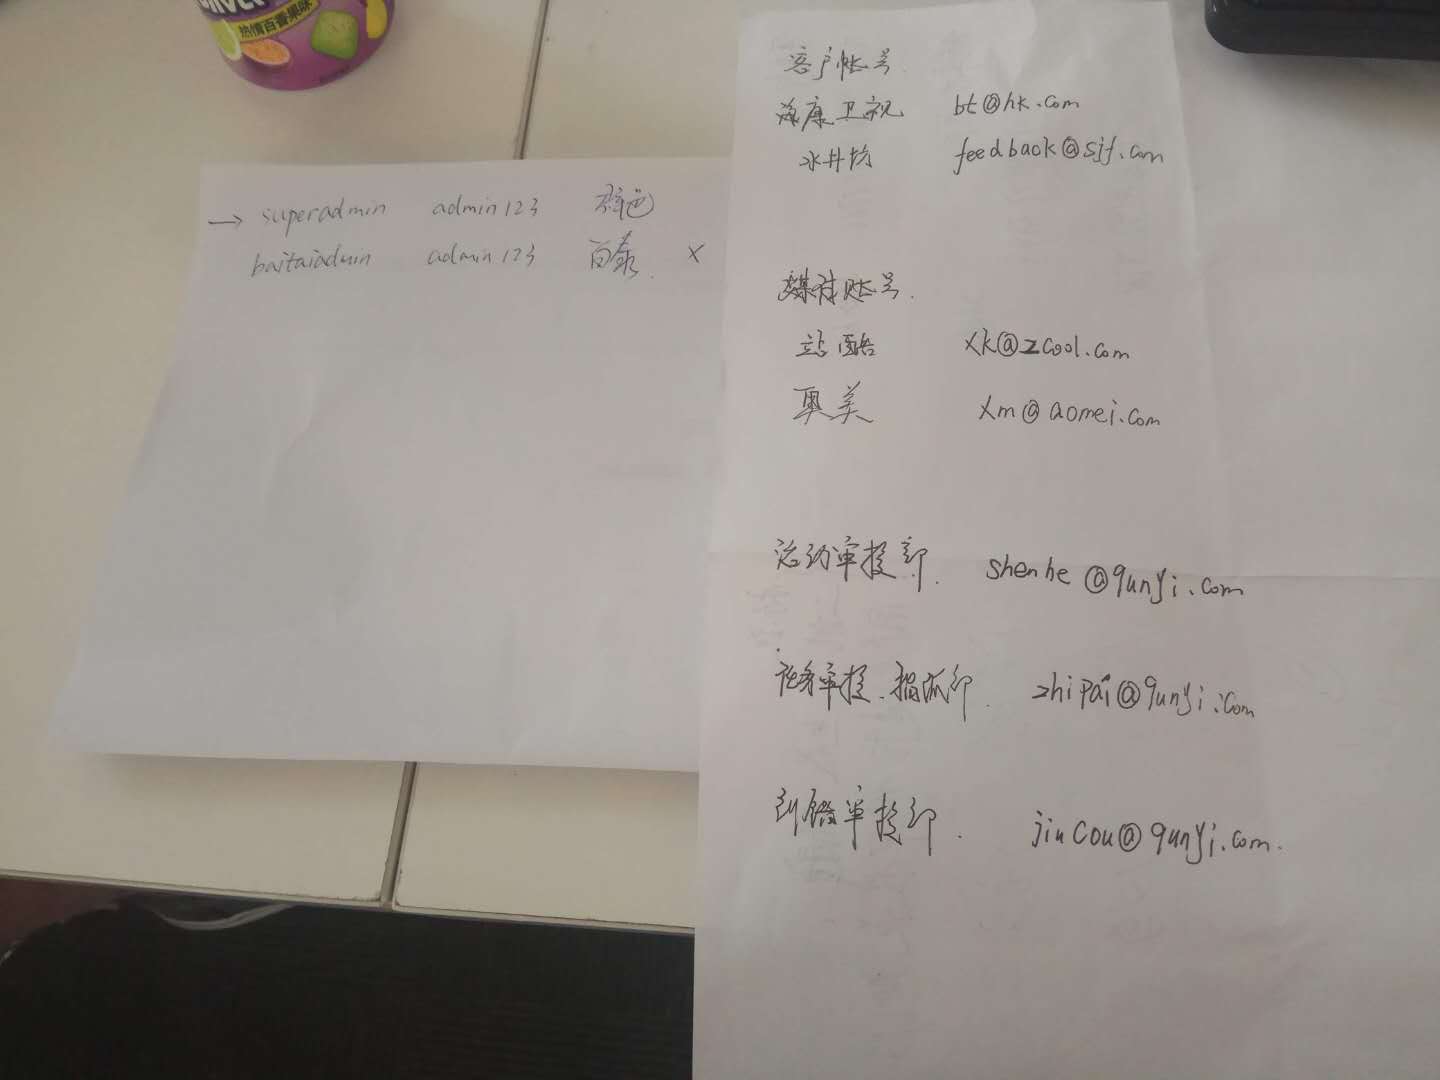 热情百香果味
→ superadmin admin123
baitaiadmin admin123 百泰 ×
客户帐号
海康卫视 bt@hk.com
水井坊 feedback@sjf.com
媒体账号.
站酷 xk@zcool.com
奥美 xm@aomei.com
活动审核部. shenhe@qunyi.com
任务审核、指派部. zhipai@qunyi.com
纠错审核部. jiucou@qunyi.com.